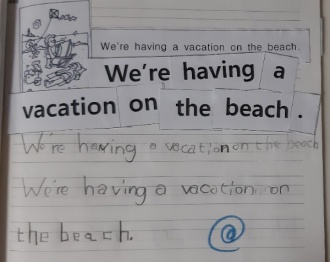 We're having a vacation on the beach.
We're having a
vacation on the beach.
We're having a vacation on the beach
We're having a vacation on
the beach.
@